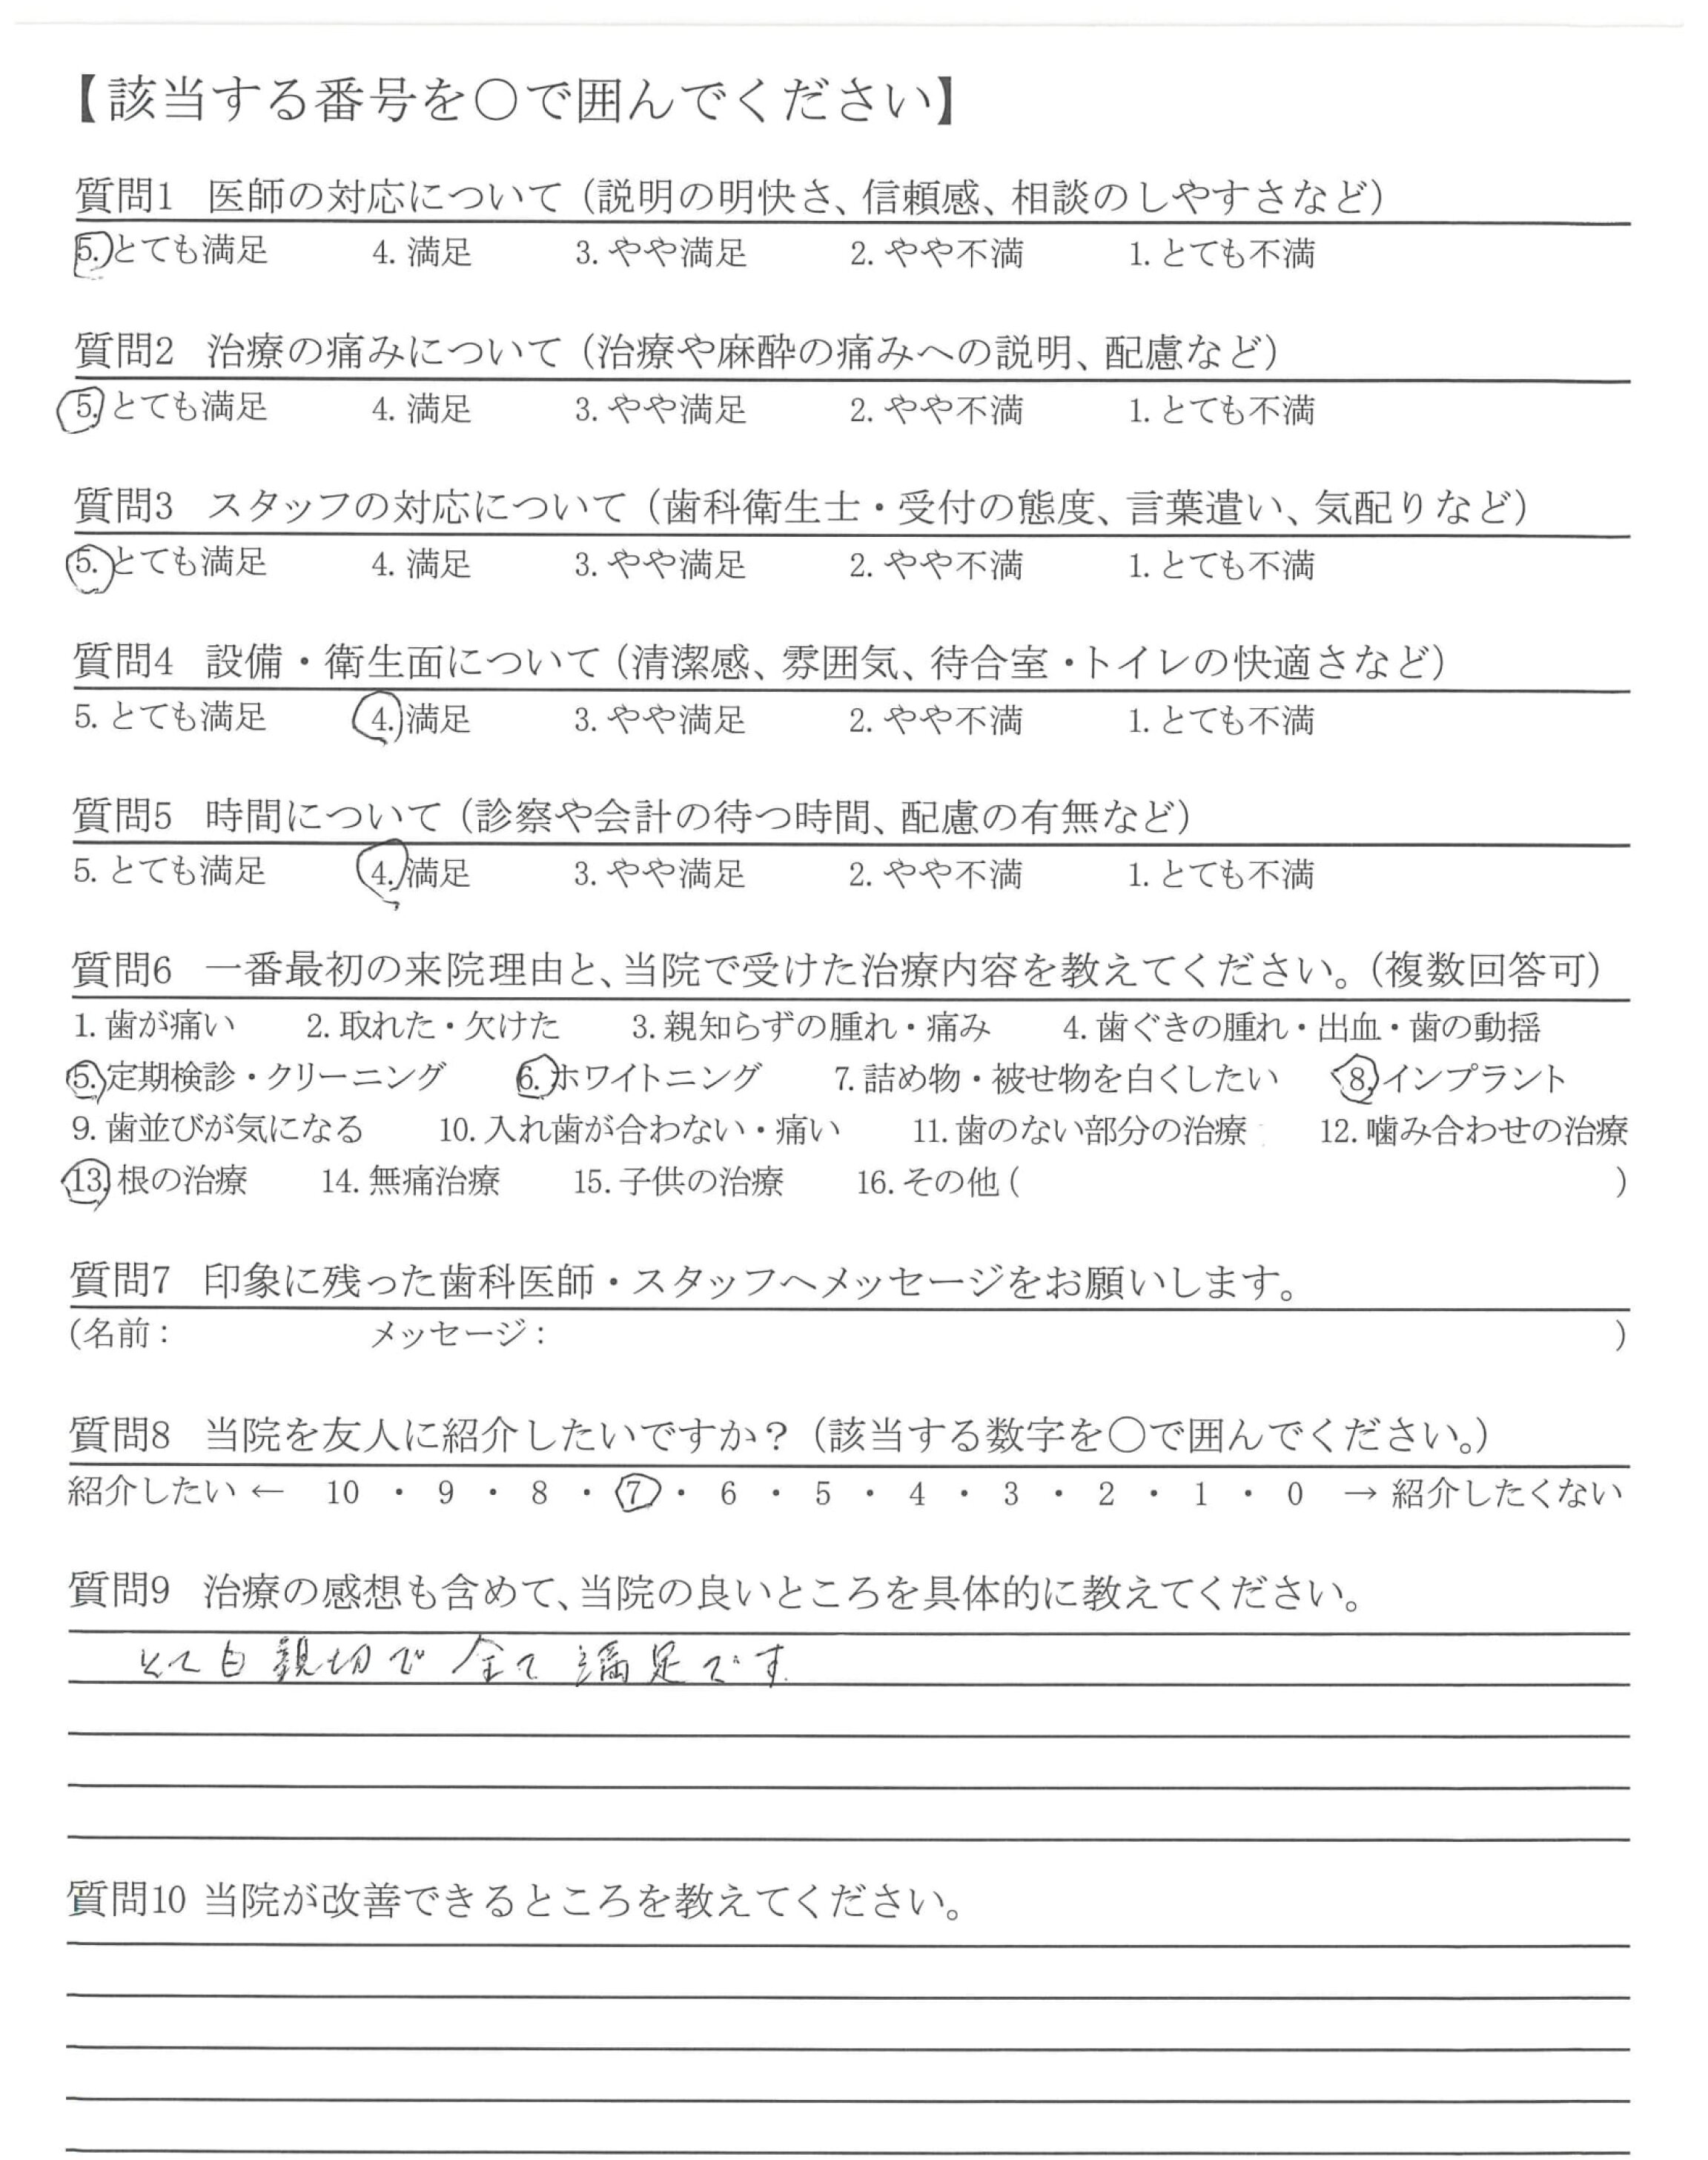 【該当する番号を〇で囲んでください】
質問1 医師の対応について（説明の明快さ、信頼感、相談のしやすさなど）
5. とても満足 4. 満足 3. やや満足 2. やや不満 1. とても不満
質問2 治療の痛みについて（治療や麻酔の痛みへの説明、配慮など）
5. とても満足 4. 満足 3. やや満足 2. やや不満 1. とても不満
質問3 スタッフの対応について（歯科衛生士・受付の態度、言葉遣い、気配りなど）
5. とても満足 4. 満足 3. やや満足 2. やや不満 1. とても不満
質問4 設備・衛生面について（清潔感、雰囲気、待合室・トイレの快適さなど）
5. とても満足 4. 満足 3. やや満足 2. やや不満 1. とても不満
質問5 時間について（診察や会計の待つ時間、配慮の有無など）
5. とても満足 4. 満足 3. やや満足 2. やや不満 1. とても不満
質問6 一番最初の来院理由と、当院で受けた治療内容を教えてください。（複数回答可）
1. 歯が痛い 2. 取れた・欠けた 3. 親知らずの腫れ・痛み 4. 歯ぐきの腫れ・出血・歯の動揺
5. 定期検診・クリーニング 6. ホワイトニング 7. 詰め物・被せ物を白くしたい 8. インプラント
9. 歯並びが気になる 10. 入れ歯が合わない・痛い 11. 歯のない部分の治療 12. 噛み合わせの治療
13. 根の治療 14. 無痛治療 15. 子供の治療 16. その他（ ）
質問7 印象に残った歯科医師・スタッフへメッセージをお願いします。
（名前： メッセージ： ）
質問8 当院を友人に紹介したいですか？（該当する数字を〇で囲んでください。）
紹介したい ← 10 ・ 9 ・ 8 ・ 7 ・ 6 ・ 5 ・ 4 ・ 3 ・ 2 ・ 1 ・ 0 → 紹介したくない
質問9 治療の感想も含めて、当院の良いところを具体的に教えてください。
とても親切で全て満足です
質問10 当院が改善できるところを教えてください。